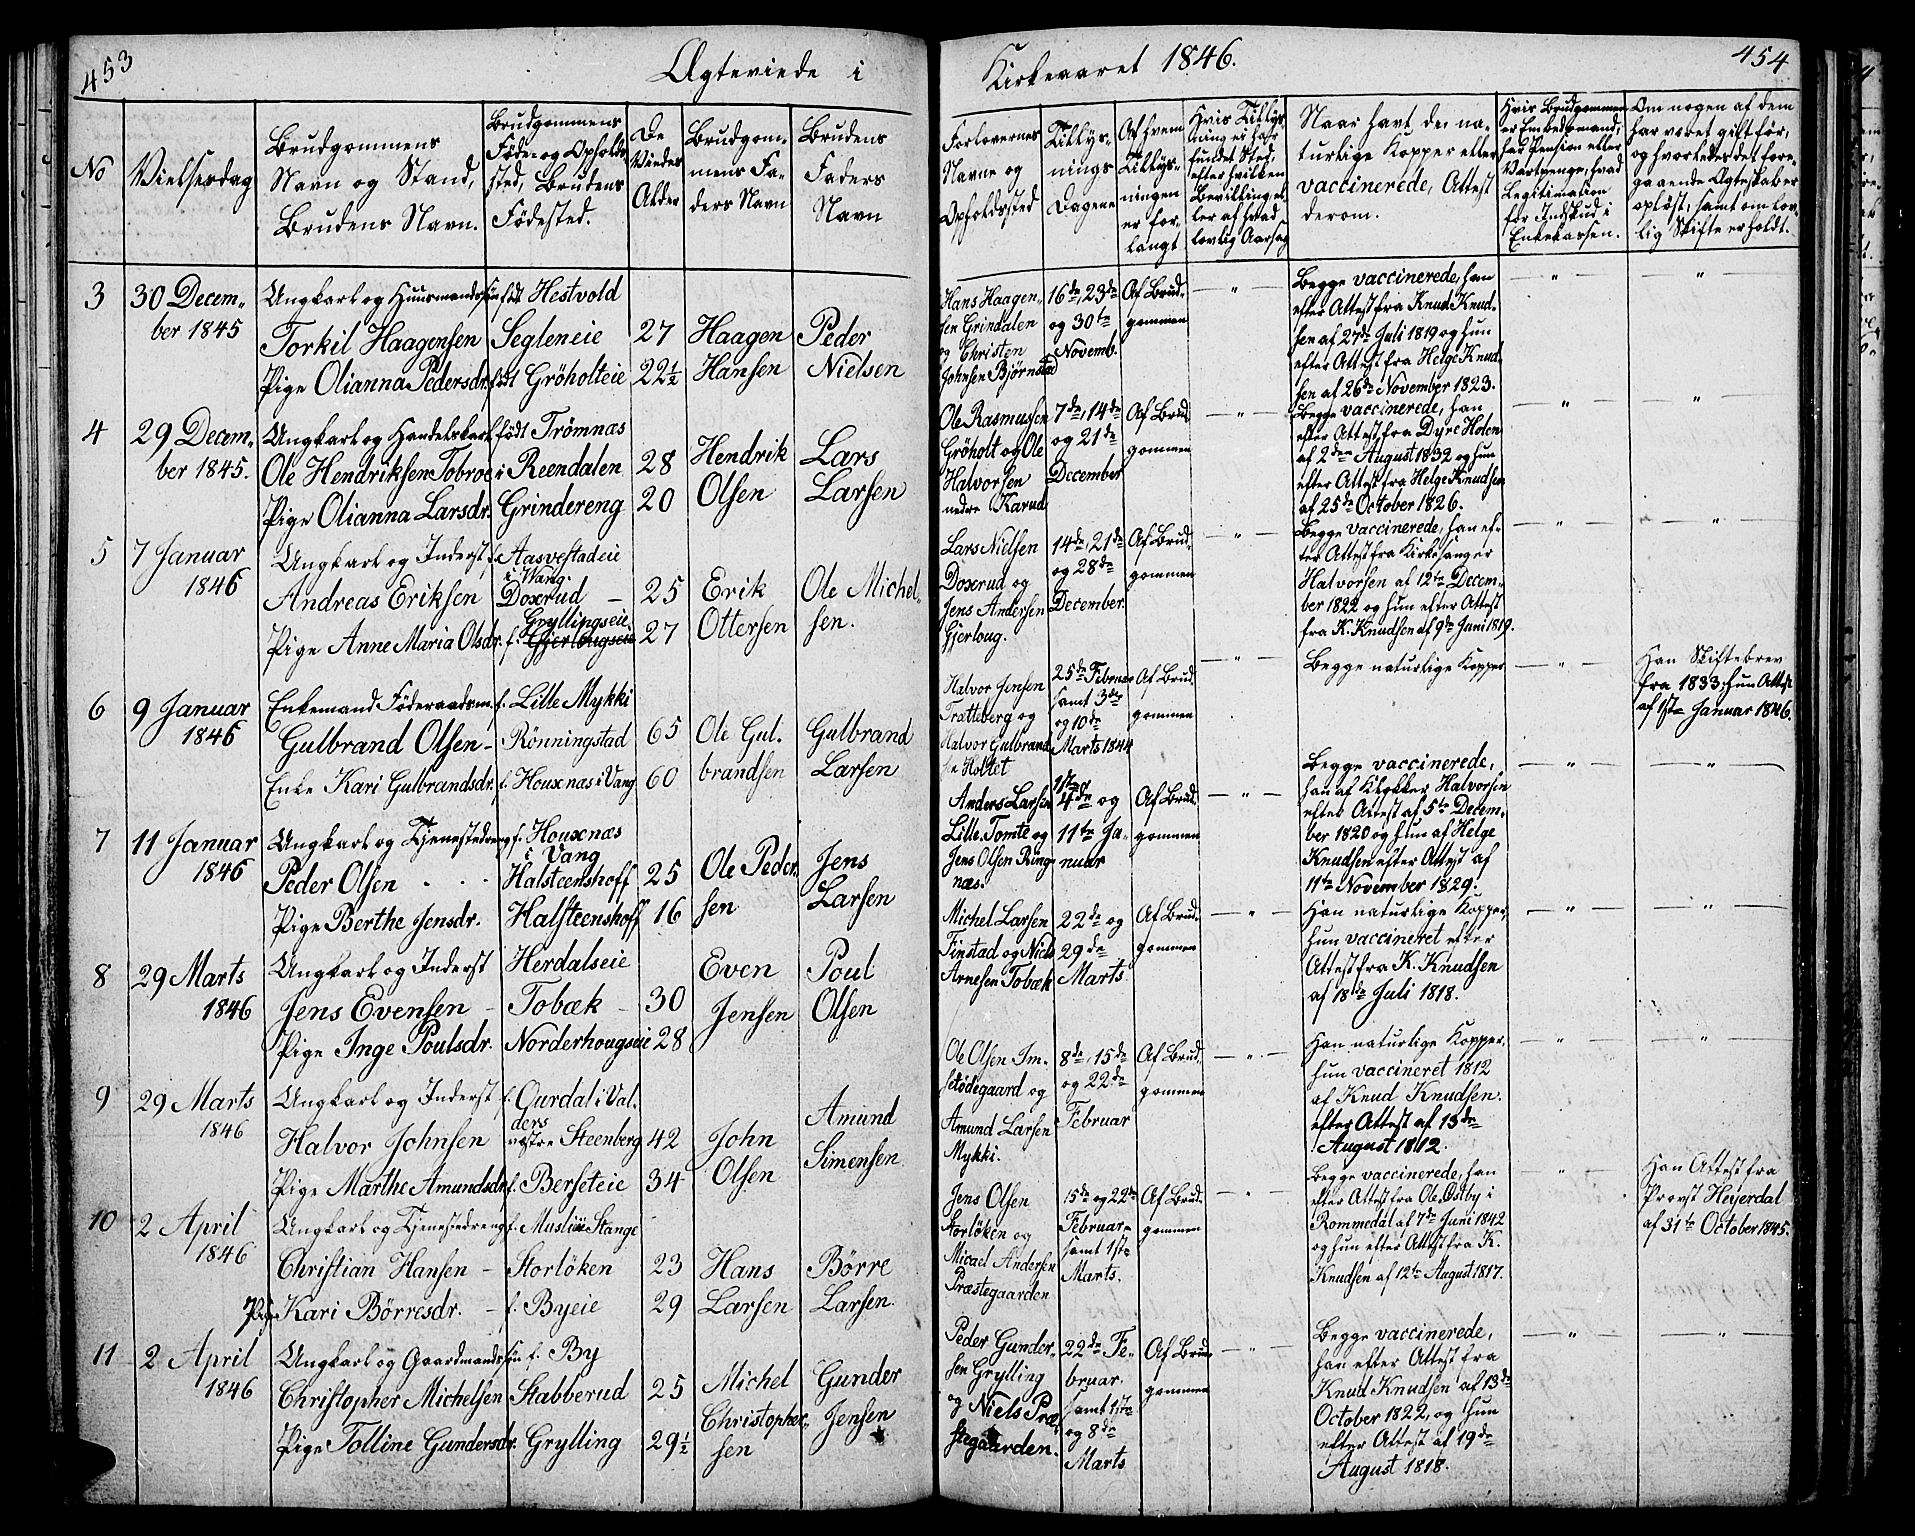 453
Ægteviede i
Kirkeaaret 1846.
454
No
Vielsesdag
Brudgommens
Navn og Stand,
Brudens Navn.
Brudgommens
Føde- og Opholds
sted, Brudens
Fødested.
De
Viedes
Alder
Brudgom-
mens Fa-
ders Navn
Brudens
Faders
Navn
Forlovernes
Navne og
Opholdssted
Tillys-
nings
Dagene
Af hvem
Tillys-
ningen
er for-
langt
Hvis Tillys-
ning ei har
fundet Sted,
efter hvilken
Bevilling el-
ler af hvad
lovlig Aarsag
Naar havt de na-
turlige Kopper eller
vaccinerede, Attest
derom.
Hvis Brudgommen
er Embedsmand,
har Pension eller
Vartpenge, hvad
Legitimation
for Indskud i
Enkekassen.
Om nogen af dem
har været gift før,
og hvorledes det fore-
gaaende Ægteskab er
opløst, samt om lov-
lig Skifte er holdt.
3
30 Decem-
ber 1845
Ungkarl og Huusmandssøn
Torkil Haagensen
Pige Olianna Pedersdr.
født Hestvold
Segleneie
født Gröholteie
27
22½
Haagen
Hansen
Peder
Nielsen
Hans Haagen-
sen Grindalen
og Christen
Johnsen Bjørnstad
16de, 23de
og 30te
Novemb.
Af Brud-
gommen
Begge vaccinerede, han
efter Attest fra Knud Knud-
sen af 27de Juli 1819 og hun
efter Attest fra Helge Knud
sen af 26de November 1823.
4
29 Decem-
ber 1845.
Ungkarl og Handelskarl
Ole Hendriksen Tobroe
Pige Olianna Larsdr.
født Trömnæs
i Reendalen
Grindereng
28
20
Hendrik
Olsen
Lars
Larsen
Ole Rasmusen
Gröholt og Ole
Halvorsen
nedre Karud
7de, 14de
og 21de
December
Af Brud
gommen
Begge vaccinerede, han
efter Attest fra Dyre Holen
af 2den August 1832 og hun
efter Attest fra Helge Knudsen
af 25de October 1826.
5
7 Januar
1846
Ungkarl og Inderst,
Andreas Eriksen
Pige Anne Maria Olsdr.
f. Aasvestadeie
i Wang.
Doxrud
Gryllingseie
f. Gjerlougseie
25
27
Erik
Ottersen
Ole Michel-
sen.
Lars Nielsen
Doxrud og
Jens Andersen
Gjerloug.
14de, 21de
og 28de
December.
Af Brud-
gommen
Begge vaccinerede, han ef-
ter Attest fra Kirkesanger
Halvorsen af 12te Decem-
ber 1822 og hun efter Attest
fra K. Knudsen af 9de Juni 1819.
6
9 Januar
1846
Enkemand Föderaadsm.
Gulbrand Olsen
Enke Kari Gulbrandsdr.
f. Lille Mykki
Rönningstad
f. Houxnæs i Vang
65
60
Ole Gul-
brandsen
Gulbrand
Larsen
Halvor Jensen
Trætteberg og
Halvor Gulbrand
sen Holtet
25de Februar
samt 3de
og 10de
Marts 1844
Af Brud-
gommen
Begge naturlige Kopper
Han Skiftebrev
fra 1833, hun Attest
af 1ste Januar 1846.
7
11 Januar
1846
Ungkarl og Tjenestedreng
Peder Olsen
Pige Berthe Jensdr.
f. Houxnæs
i Vang
Halsteenshoff
Halsteenshoff
25
16
Ole Peder-
sen
Jens
Larsen
Anders Larsen
Lille Tomte og
Jens Olsen Ring-
næs.
1ste
4de og
11te Ja-
nuar
Af Brud-
gommen
Begge vaccinerede,
han af Klokker Halvorsen
efter Attest af 5te Decem-
ber 1820 og hun af Helge
Knudsen efter Attest af
11te November 1829.
8
29 Marts
1846
Ungkarl og Inderst
Jens Evensen
Pige Inge Poulsdr.
Herdalseie
Tobæk
Norderhougseie
30
28
Even
Jensen
Poul
Olsen
Michel Larsen
Finstad og Niels
Arnesen Tobæk
22de og
29de
Marts
Af Brud-
gommen
Han naturlige Kopper,
hun vaccineret efter
Attest fra K. Knudsen
af 18de Juli 1818.
9
29 Marts
1846
Ungkarl og Inderst
Halvor Johnsen
Pige Marthe Amundsdr.
f. Ourdal i Val-
ders
vestre Steenberg
f. Berseteie
42
34
John
Olsen
Amund
Simensen
Ole Olsen Im-
setödegaard og
Amund Larsen
Mykki.
8de, 15de
og 22de
Februar
Af Brud-
gommen
Han naturlige Kopper,
hun vaccineret 1812
af Knud Knudsen
efter Attest af 13de
August 1812.
10
2 April
1846
Ungkarl og Tjenestedreng
Christian Hansen
Pige Kari Börresdr.
f. Muslii Stange
Storlöken
f. Byeie
23
29
Hans
Larsen
Börre
Larsen.
Jens Olsen
Storlöken og
Micael Andersen
Præstegaarden
15de og 22de
Februar
samt 1ste
Marts.
Af Brud-
gommen
Begge vaccinerede, han
efter Attest fra Ole Østby i
Rommedal af 7de Juni 1842
og hun efter Attest fra K.
Knudsen af 12te August 1817.
Han Attest fra
Provst Heyerdal
af 31te October 1845.
11
2 April
1846
Ungkarl og Gaardmandssøn
Christopher Michelsen
Pige Tolline Gundersdr.
f. By
Stabberud
Grylling
25
29½
Michel
Christopher-
sen
Gunder
Jensen
Peder Gunder-
sen Grylling
og Niels Præ-
stegaarden.
22de Fe-
bruar.
samt 1ste
og 8de
Marts
Af Brud-
gommen
Begge vaccinerede,
han efter Attest fra
Knud Knudsen af 13de
October 1822, og hun
efter Attest af 19de
August 1818.